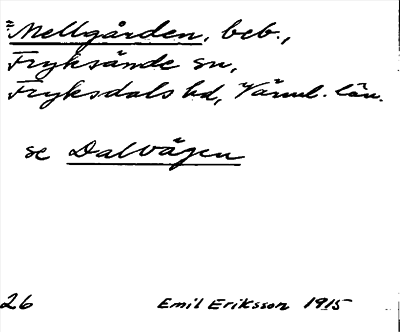 Mellgården, beb.,
Fryksände sn,
Fryksdals hd, Värml. län.
se Dalvägen
26 Emil Eriksson 1915